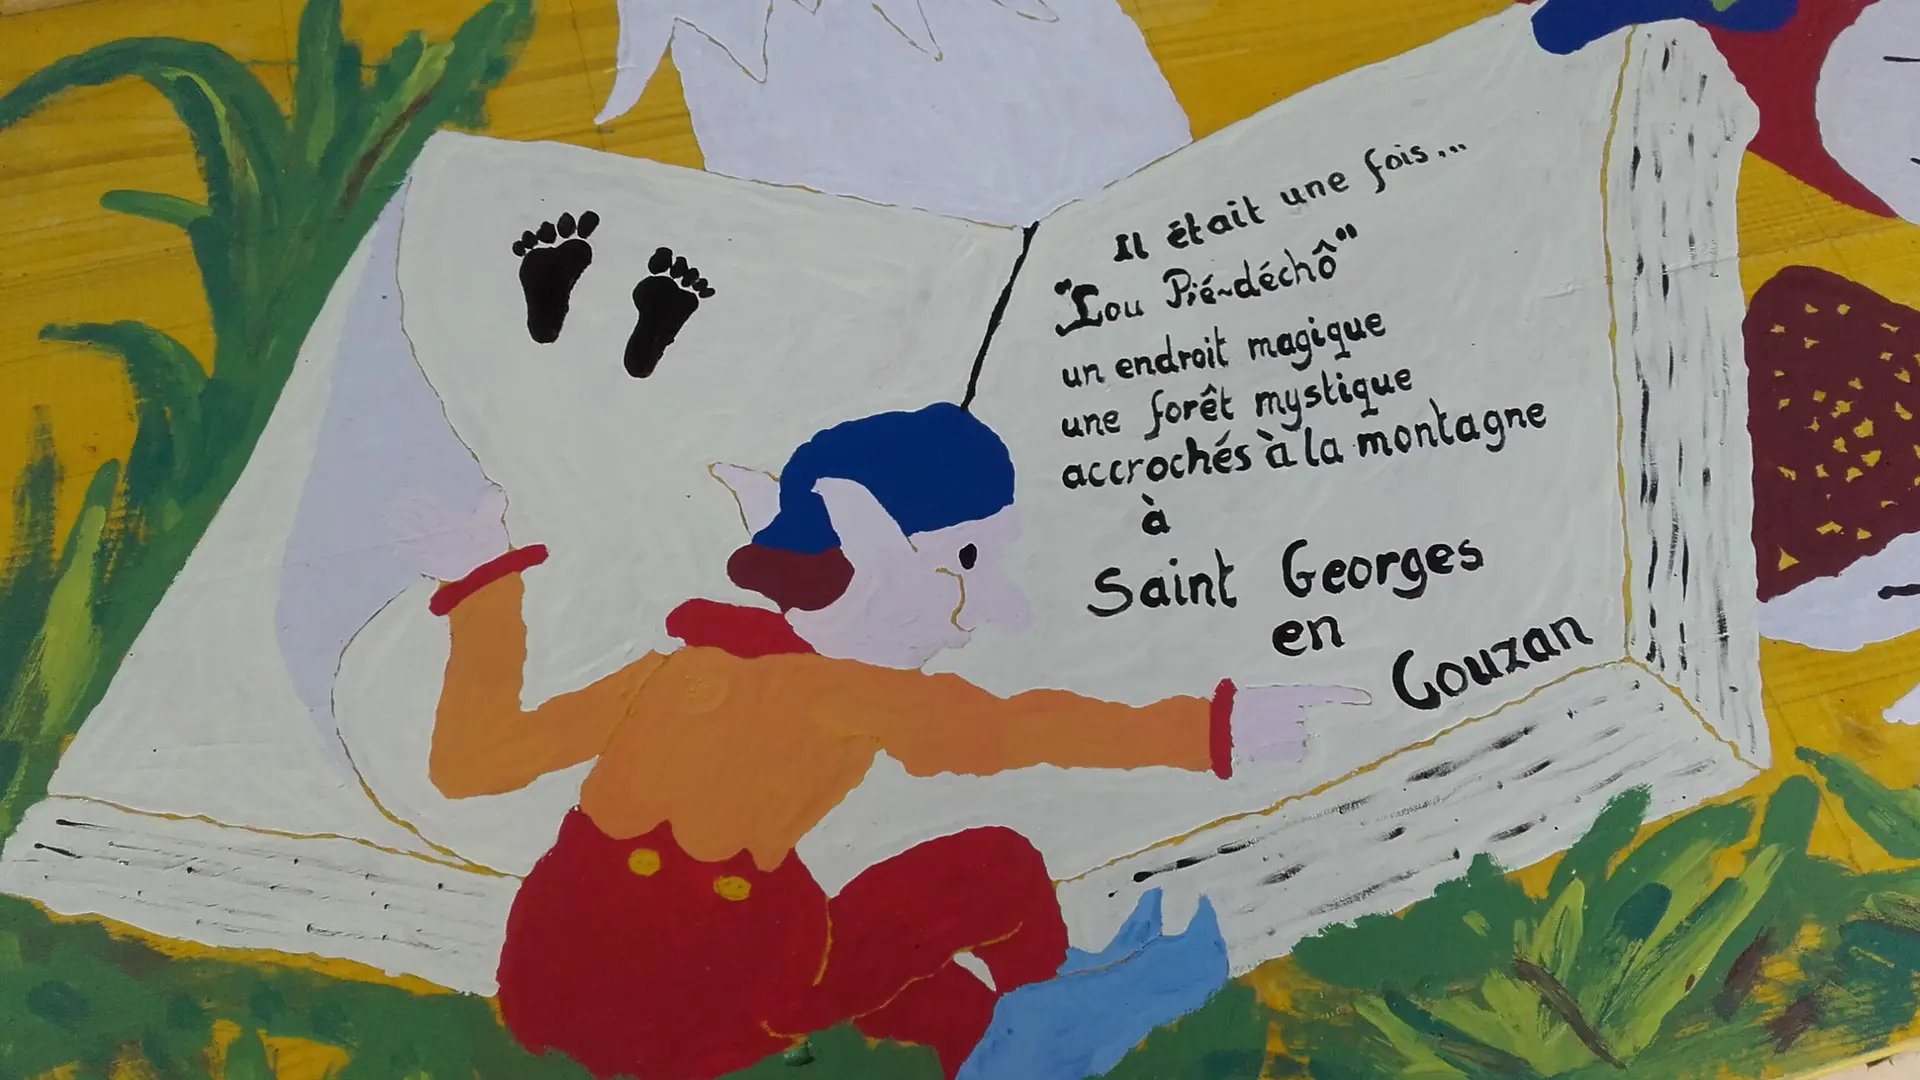 Il était une fois...
"Lou Pié~déchô"
un endroit magique
une forêt mystique
accrochés à la montagne
à
Saint Georges
en
Couzan